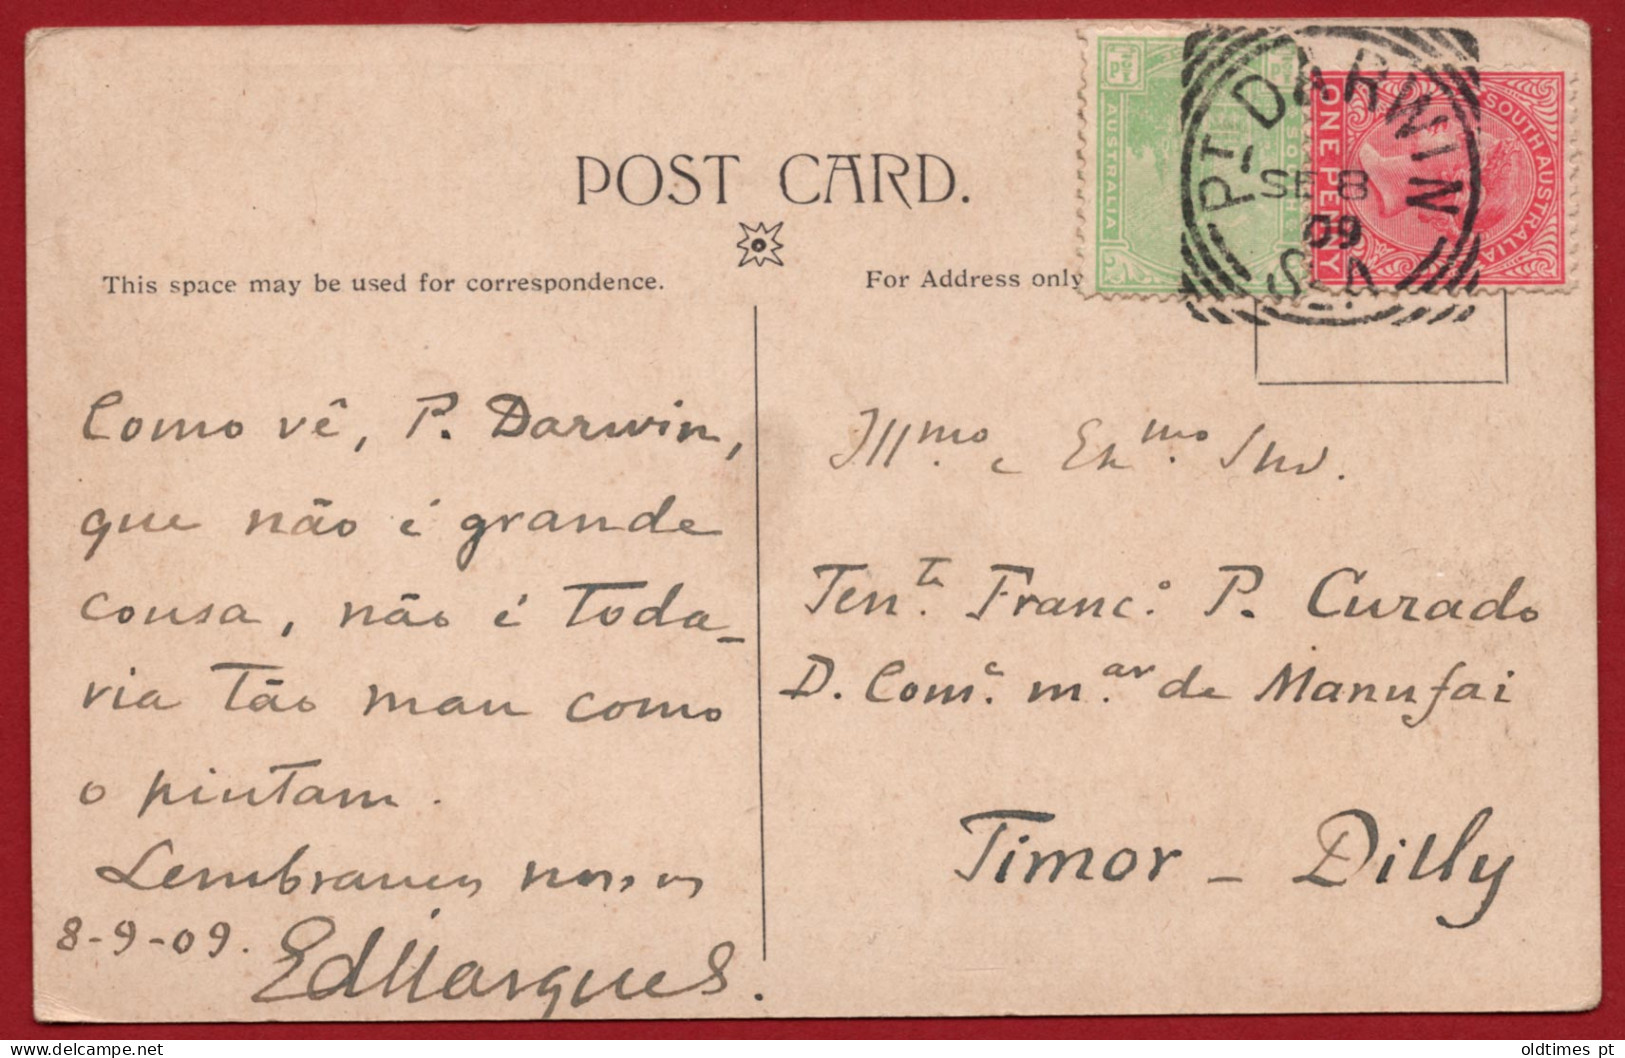 POST CARD.
This space may be used for correspondence.
For Address only
AUSTRALIA
SOUTH
SOUTH AUSTRALIA
ONE PENNY
PT DARWIN
SE 8
09
S.A.
Como vê, P. Darwin,
que não é grande
cousa, não é toda-
via tão mau como
o pintam.
Lembranças nossas
8-9-09.
EdMarques.
Illmo. e Exmo. Snr.
Tente. Franco. P. Curado
D. Come. mar. de Manufai
Timor - Dilly
oldtimes pt